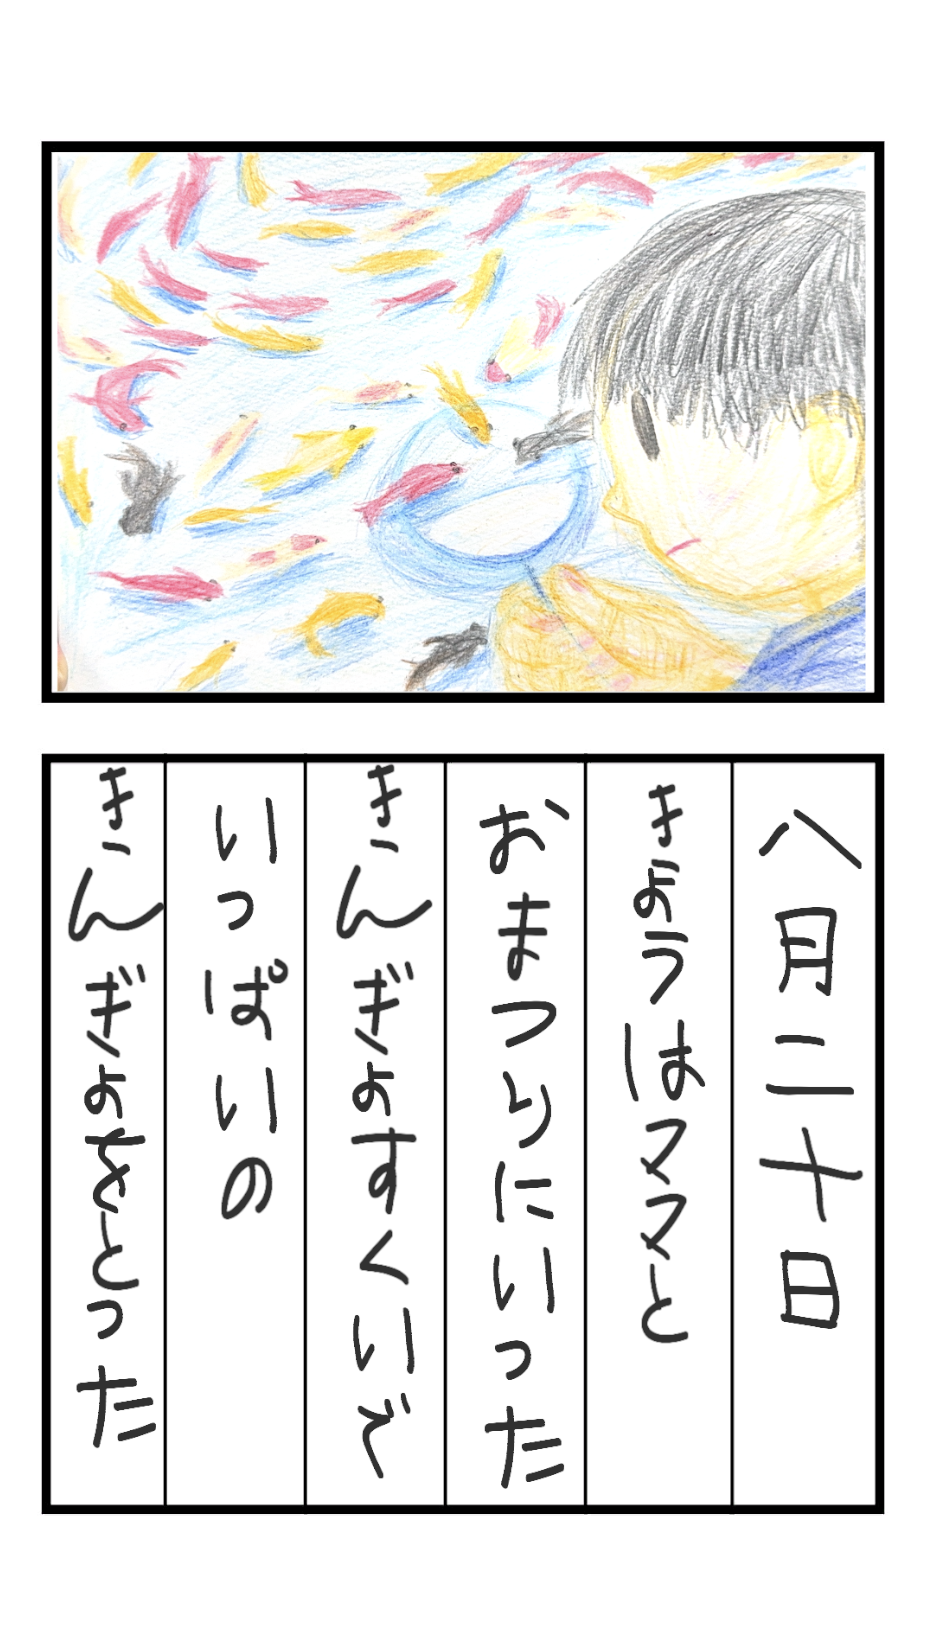 八月二十日
きょうはママと
おまつりにいった
きんぎょすくいで
いっぱいの
きんぎょをとった